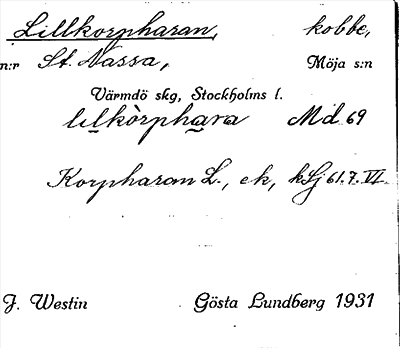 Lillkorpharan, kobbe,
n:r St. Nassa, Möja s:n
Värmdö skg, Stockholms l.
lilkòrphara Md 69
Korpharan L., ek, kSj 61.7.VI.
J. Westin Gösta Lundberg 1931